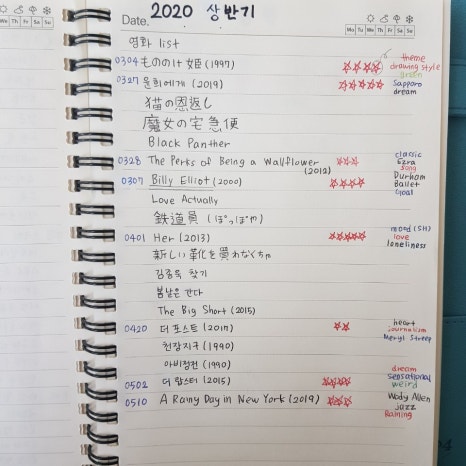 2020 상반기
Date.
Mo Tu We Th Fr Sa Su
영화 list
0304 もののけ姫 (1997) ☆☆☆☆ theme drawing style green
0327 윤희에게 (2019) ☆☆☆☆☆ Sapporo dream
猫の恩返し
魔女の宅急便
Black Panther
0328 The Perks of Being a Wallflower (2012) ☆☆☆ classic Ezra song
0307 Billy Elliot (2000) ☆☆☆☆ Durham Ballet Goal
Love Actually
鉄道員 (ぽっぽや)
0401 Her (2013) ☆☆☆☆☆ mood (SH) love loneliness
新しい靴を買わなくちゃ
김종욱 찾기
봄날은 간다
The Big Short (2015)
0420 더 포스트 (2017) ☆☆ heart journalism Meryl Streep
천장지구 (1990)
아비정전 (1990)
0502 더 랍스터 (2015) ☆☆☆☆ dream sensational weird
0510 A Rainy Day in New York (2019) ☆☆☆ Wody Allen jazz Raining